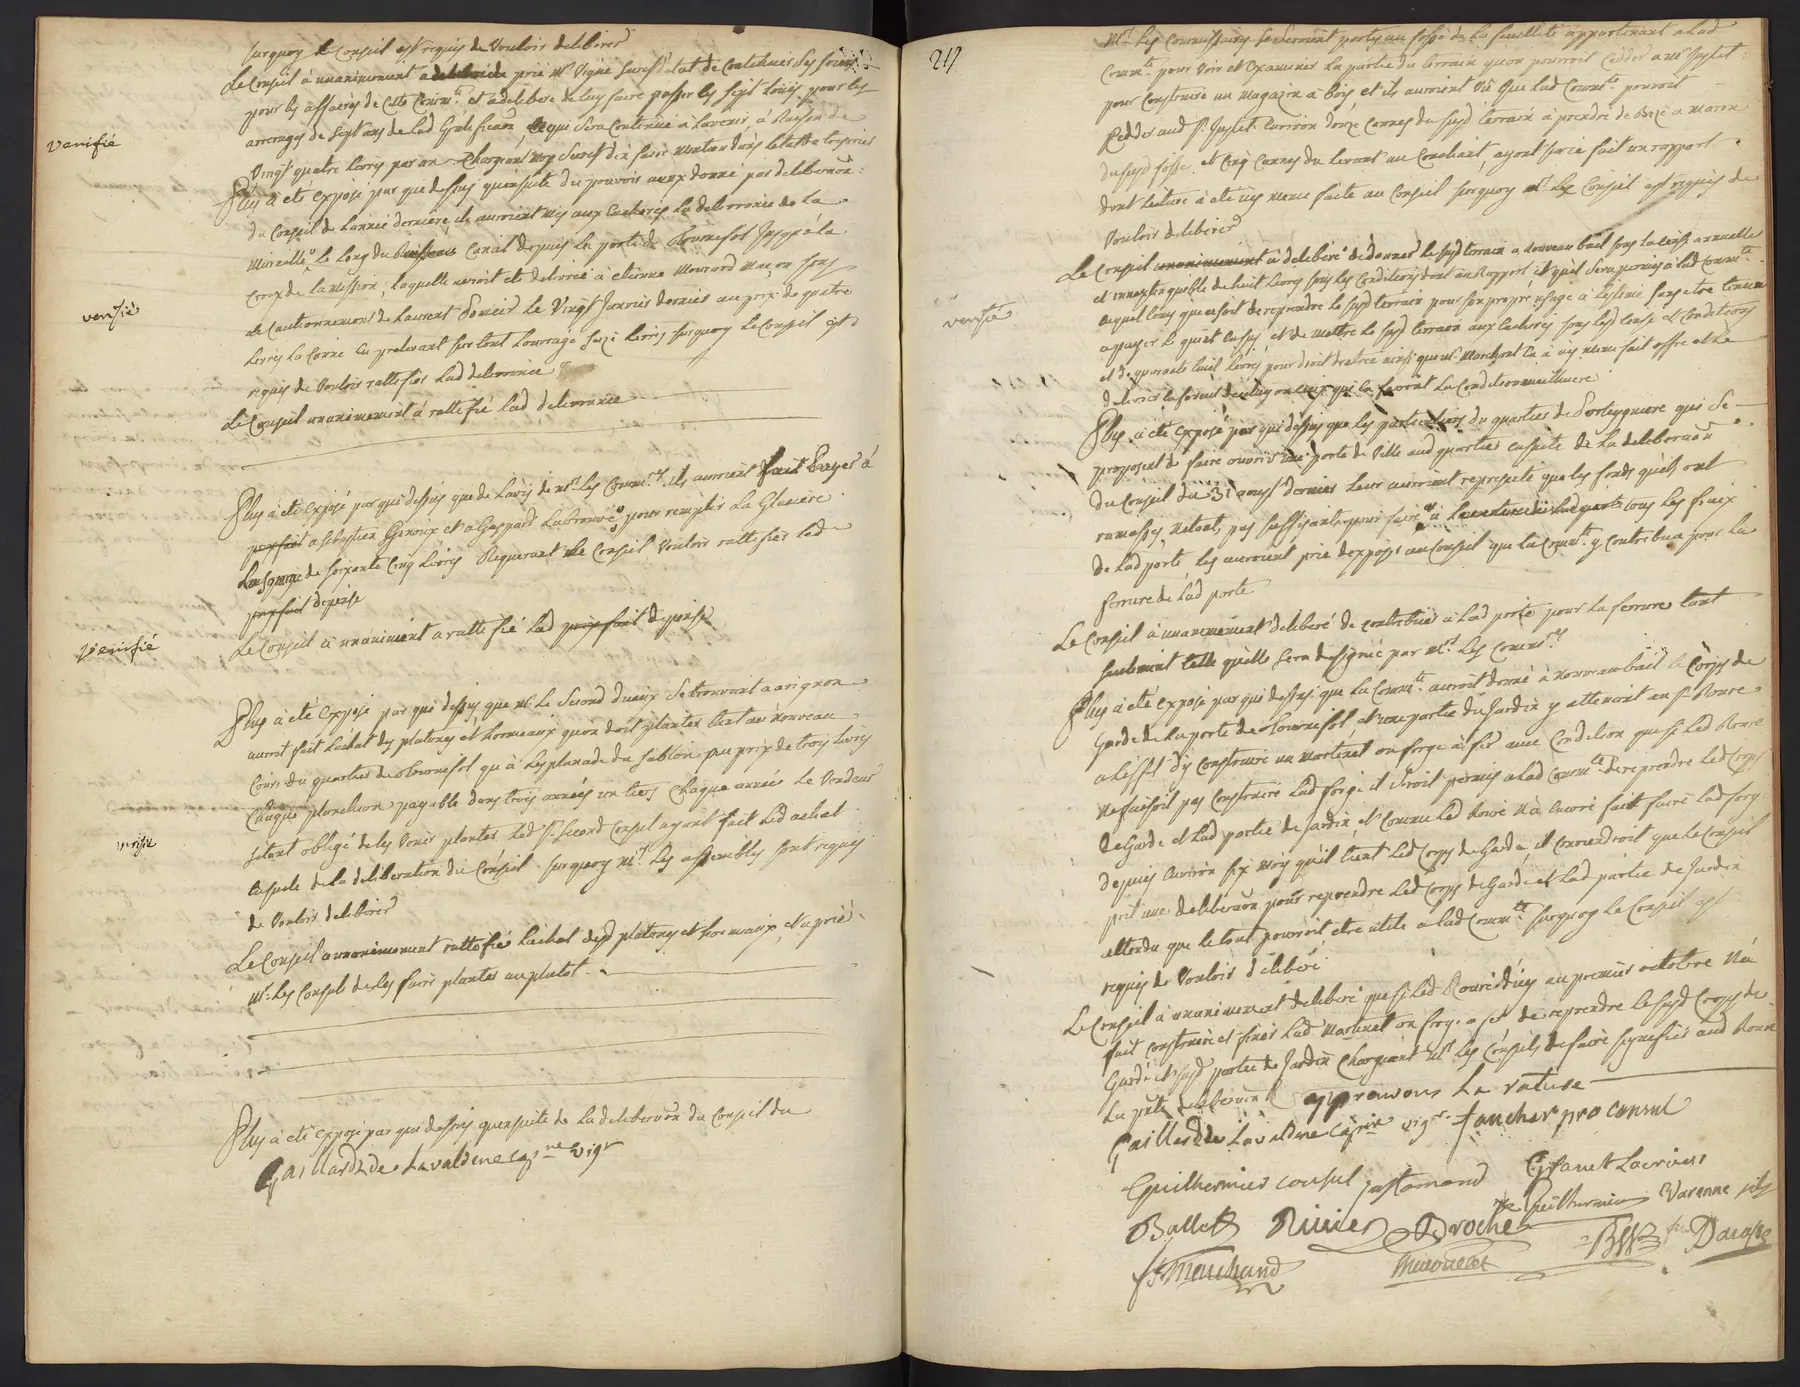 surquoy le Conseil est requis de Vouloir deliberer
Le Conseil à unanimement a deliberé de prié Mr Vigne de Continuer ses soins
pour les affaires de cette Commté et a deliberé de luy faire passer les sept Louis pour les
arrerages de sept ans de lad Gratification, ce qui sera Continué à l'avenir, à Raison de
Vingt quatre livres par an
verifié
Plus à été Exposé par qui dessus qu'ensuite du pouvoir a eux donné par deliberaon
du Conseil de l'année derniere, ils auroient mis aux Encheres la delivrance de la
Muraille le long du Ruisseau Canal depuis la porte de Tournefol Jusqu'à la
Croix de la Mission, laquelle auroit été delivrée à etienne Monard Maçon sous
le Cautionnement de Laurent le Vingt Janvier dernier au prix de quatre
livres la Canne En prelevant sur tout l'ouvrage seize livres surquoy le Conseil est
requis de Vouloir rattifier lad delivrance
verifié
Le Conseil unanimement à rattifié lad delivrance
Plus à été Exposé par qui dessus que de l'avis de Mrs les Commres ils auroient fait Payer à
a sebastien Giroux, et a Gaspard Labrouve pour remplir la Glaciere
La somme de soixante Cinq livres Requerant le Conseil Vouloir rattifier lad
prixfait depense
Le Conseil à unanimemt a rattifié lad prixfait depense
verifié
Plus à été Exposé par qui dessus que Mr le second d'iceux se trouvant a avignon
auroit fait l'achat des platanes et hormeaux qu'on doit planter tant au nouveau
Cours du quartier de Tournefol qu'à l'esplanade du sablon au prix de trois livres
Chaque planchon payable dans trois années un tiers Chaque année Le Vendeur
s'étant obligé de les Venir planter led Sr second Consul ayant fait led achat
Ensuite de la deliberation du Conseil surquoy Mrs les assemblés sont requis
de Vouloir deliberer
verifié
Le Conseil unanimement rattifié l'achat desd platanes et hormeaux, et a prié
Mrs les Consuls de les faire planter au plutot
Plus à été Exposé par qui dessus qu'ensuite de la deliberaon du Conseil du
Gaillard de Lavaldene cap.ne vigr
217
Mrs les Commissaires se seroient portés au fossé de la feuillete appartenant a lad
Commté pour Voir et Examiner la partie du terrain qu'on pourroit Ceder a Mr Juslet
pour Construire un Magazin à bois, et ils auroient Vû Que lad Commté pouvoit
Cedder aud Sr Juslet Environ douze Cannes du susd terrain à prendre de Bize a Marin
du susd fossé, et Cinq Cannes du levant au Couchant, ayant sur ce fait un rapport
dont lecture à été icy meme faite au Conseil surquoy Mrs le Conseil est requis de
Vouloir deliberer
verifié
Le Conseil unanimement à deliberé de donner le susd terrain a nouveau bail sous la Cense annuelle
et innextinguible de huit livres sous les Conditions dont au Rapport et qu'il sera permis à lad Commté
en quel tems que ce soit de reprendre le susd terrain pour son propre usage à l'estime sans etre tenue
a payer le quint en sus, et de mettre le susd terrain aux Encheres sous lesd Cense et Conditions
et de quarante huit livres pour droit d'entrée ainsi que Mr Marchant en à icy meme fait offre et le
delivrer en faveur de celuy ou ceux qui en feront la Condition meilleure
Plus à été Exposé par qui dessus que les particuliers du quartier de Portaygniere qui se
proposent de faire ouvrir une porte de Ville aud quartier ensuite de la deliberaon
du Conseil du 31 aoust dernier leur auroient representé que les fonds qu'ils ont
ramassés n'etant pas suffisants pour faire tous les fraix
de lad porte les auroient prié d'exposer au Conseil que la Commté y contribua pour la
ferrure de lad porte
Le Conseil à unanimement deliberé de contribuer à lad porte pour la ferrure tant
seulement telle qu'elle sera designée par Mrs les Commres
Plus à été Exposé par qui dessus que la Commté auroit donné à nouveau bail le Corps de
garde de la porte de Tournefol et une partie du Jardin y attenant au Sr Roure
a l'effet d'y Construire un Martinet ou forge à fer avec Condition que si led Roure
ne faisoit pas Construire lad forge, il seroit permis a lad Commté de reprendre led Corps
de Garde et lad partie de Jardin, et Comme led Roure n'à encore fait faire lad forge
depuis Environ six mois qu'il tient led Corps de Garde, il Conviendroit que le Conseil
prit une deliberaon pour reprendre led Corps de Garde et lad partie de Jardin
attendu que le tout pourroit etre utile a lad Commté surquoy le Conseil est
requis de Vouloir deliberé
Le Conseil à unanimement deliberé que si led Roure d'icy au premier octobre n'à
fait Construire et finir lad Martinet ou forge a fer de reprendre le susd Corps de
Garde et susd partie de Jardin Chargeant Mrs les Consuls de faire signifier aud Roure
La pnte deliberaon approuvons la rature
Gaillard de Lavaldene cap.ne vigr fancher pro consul
Guilhermier consul justamond Granet Lacroix
Guilhermier Varenne fils
Ballet Rivier Deroche
Marchand